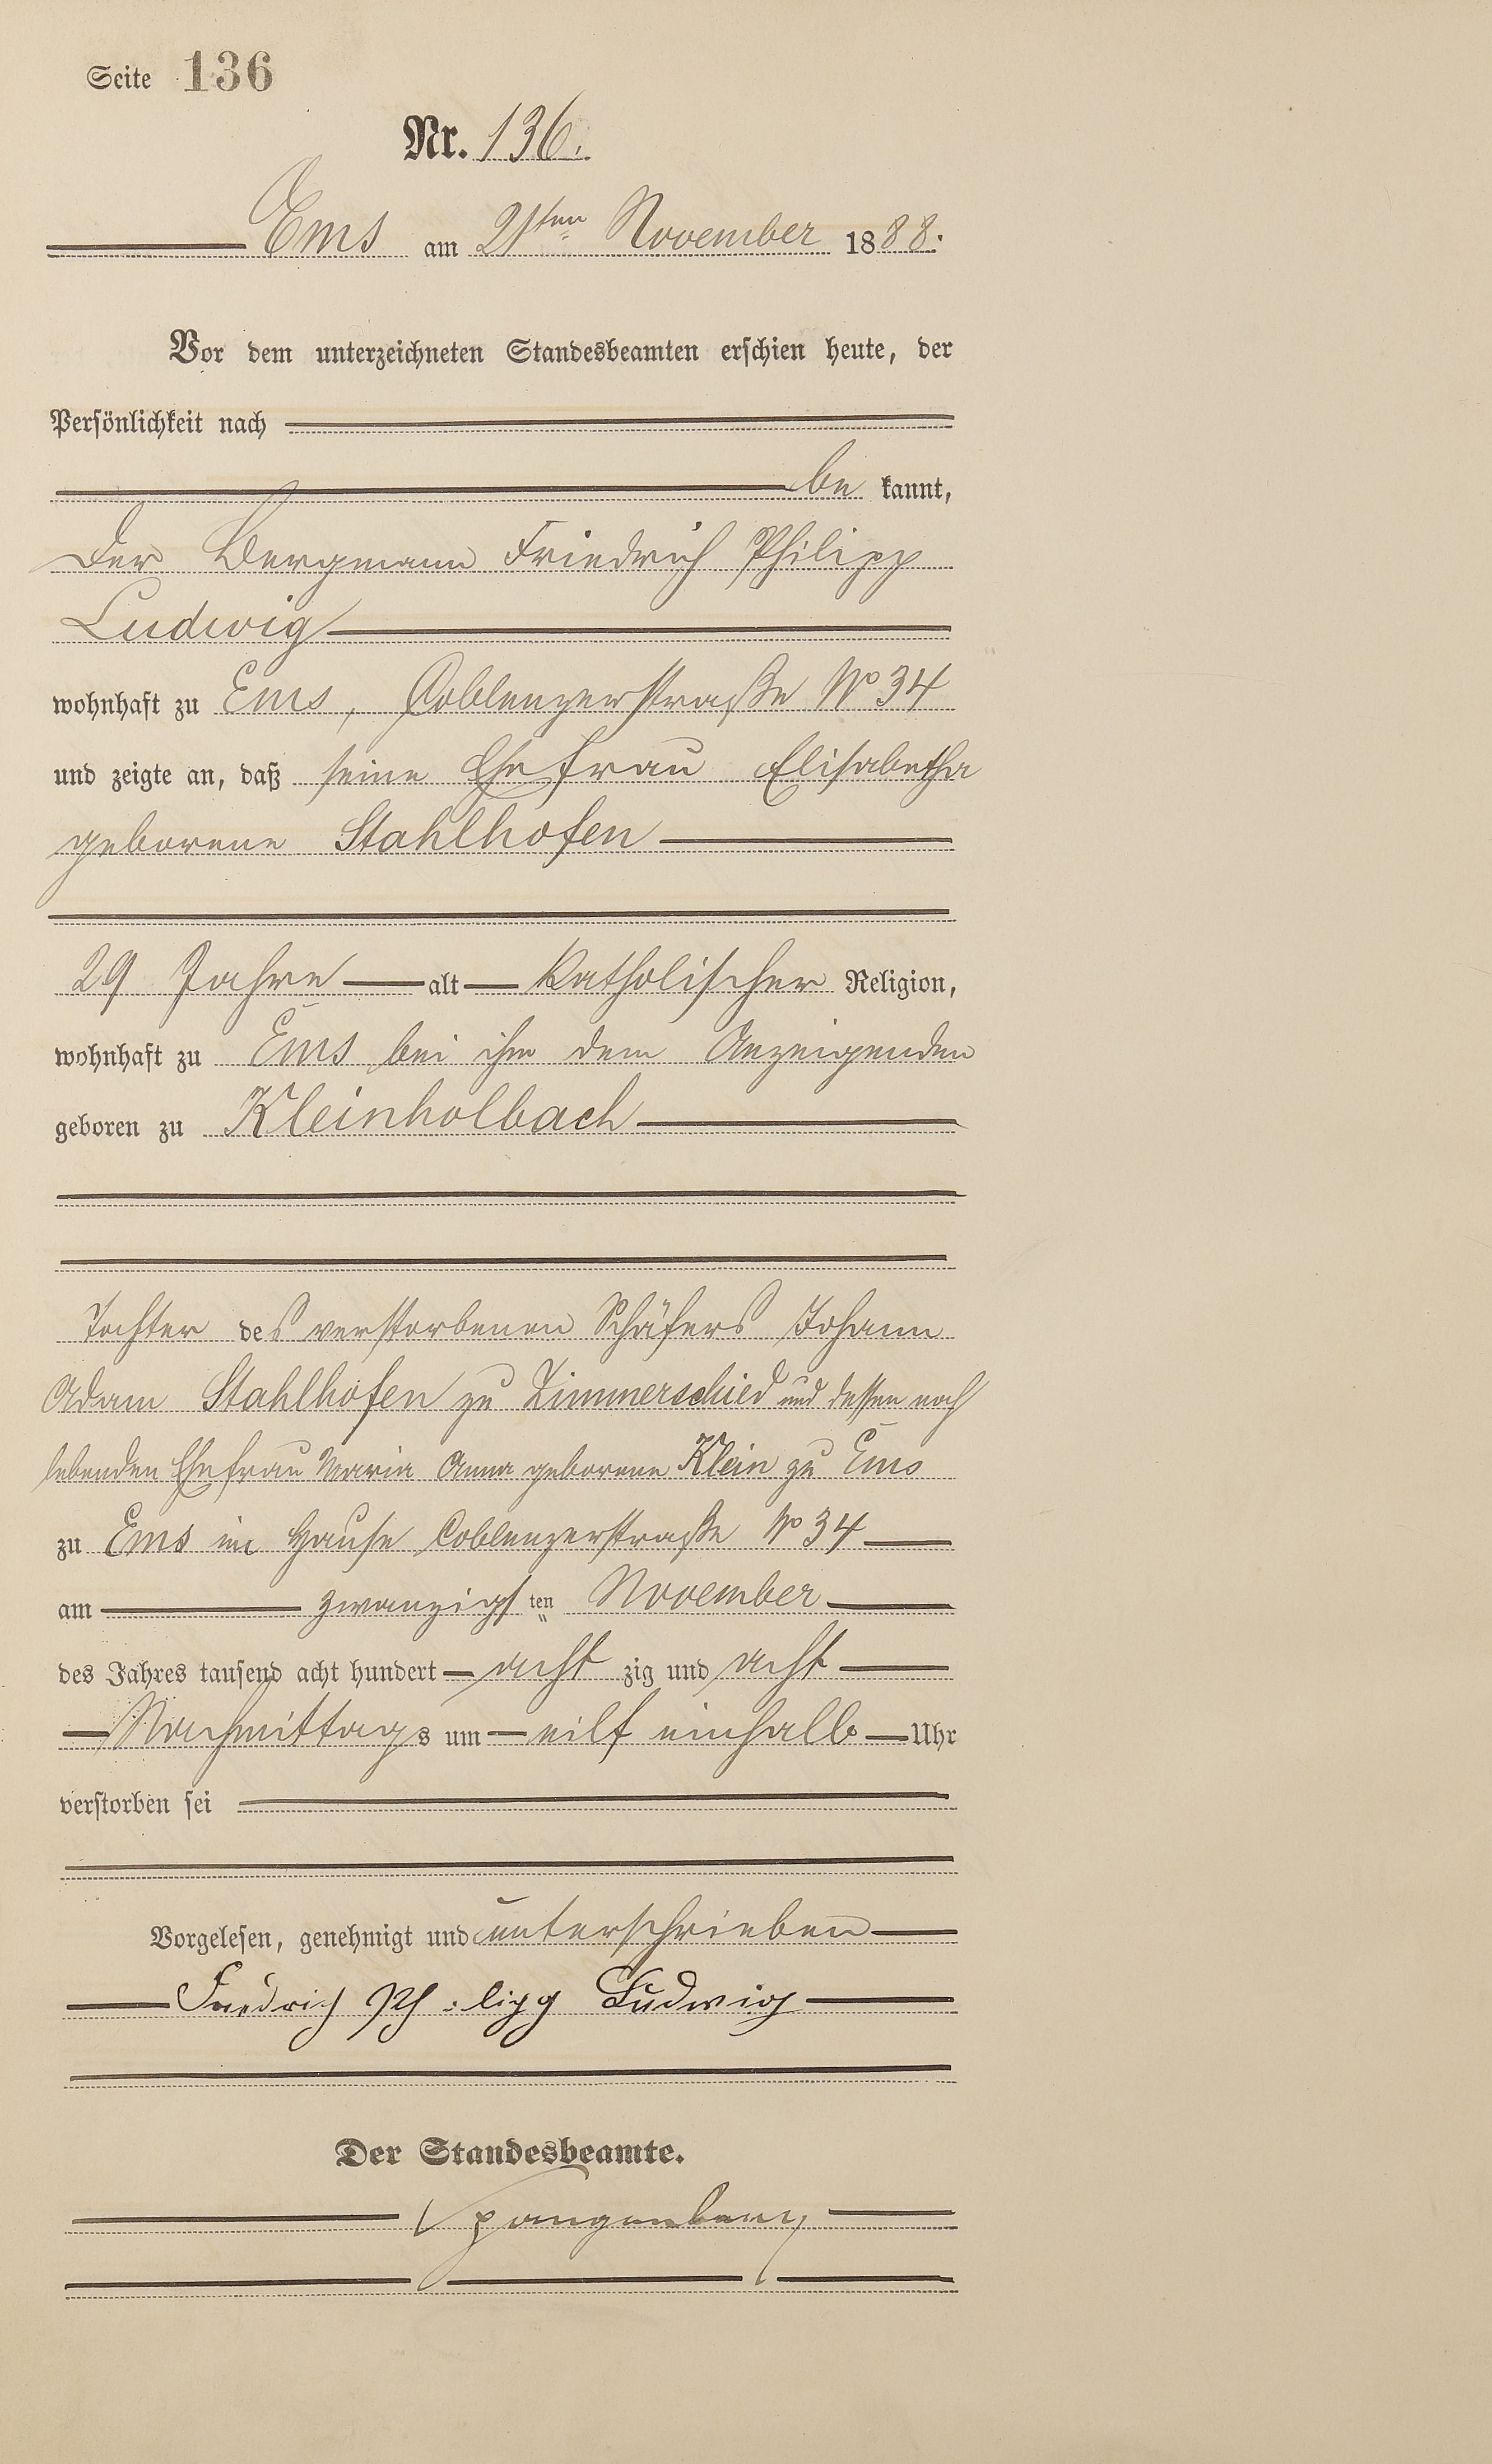 Seite 136
Nr. 136.
Ems am 21ten November 1888.
Vor dem unterzeichneten Standesbeamten erschien heute, der
Persönlichkeit nach
be kannt,
der Bergmann Friedrich Philipp
Ludwig
wohnhaft zu Ems, Coblenzerstraße No 34
und zeigte an, daß seine Ehefrau Elisabetha
geborene Stahlhofen
29 Jahre alt katholischer Religion,
wohnhaft zu Ems bei ihm dem Anzeigenden
geboren zu Kleinholbach
Tochter des verstorbenen Schäfers Johann
Adam Stahlhofen zu Zimmerschied und dessen noch
lebenden Ehefrau Maria Anna geborene Klein zu Ems
zu Ems im Hause Coblenzerstraße No 34
am zwanzigsten November
des Jahres tausend acht hundert acht zig und acht
Nachmittags um eilf einhalb Uhr
verstorben sei
Vorgelesen, genehmigt und unterschrieben
Friedrich Philipp Ludwig
Der Standesbeamte.
Spangenberg